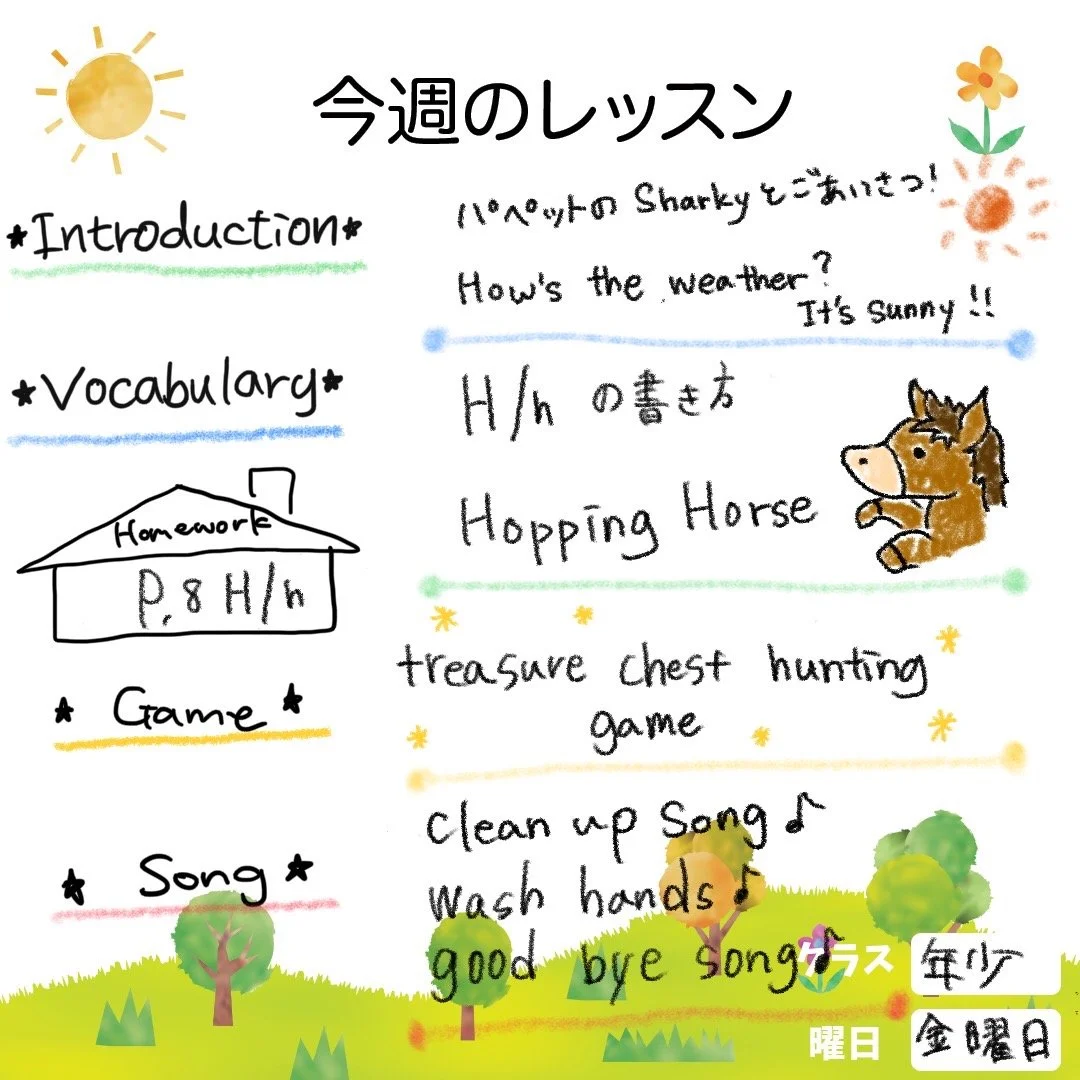 今週のレッスン
★Introduction★
パペットの Sharkyとごあいさつ!
How's the weather?
It's sunny!!
★Vocabulary★
H/h の書き方
Hopping Horse
Homework
P.8 H/h
★ Game ★
treasure chest hunting
game
★ Song ★
clean up song♪
wash hands♪
good bye song♪
クラス 年少
曜日 金曜日